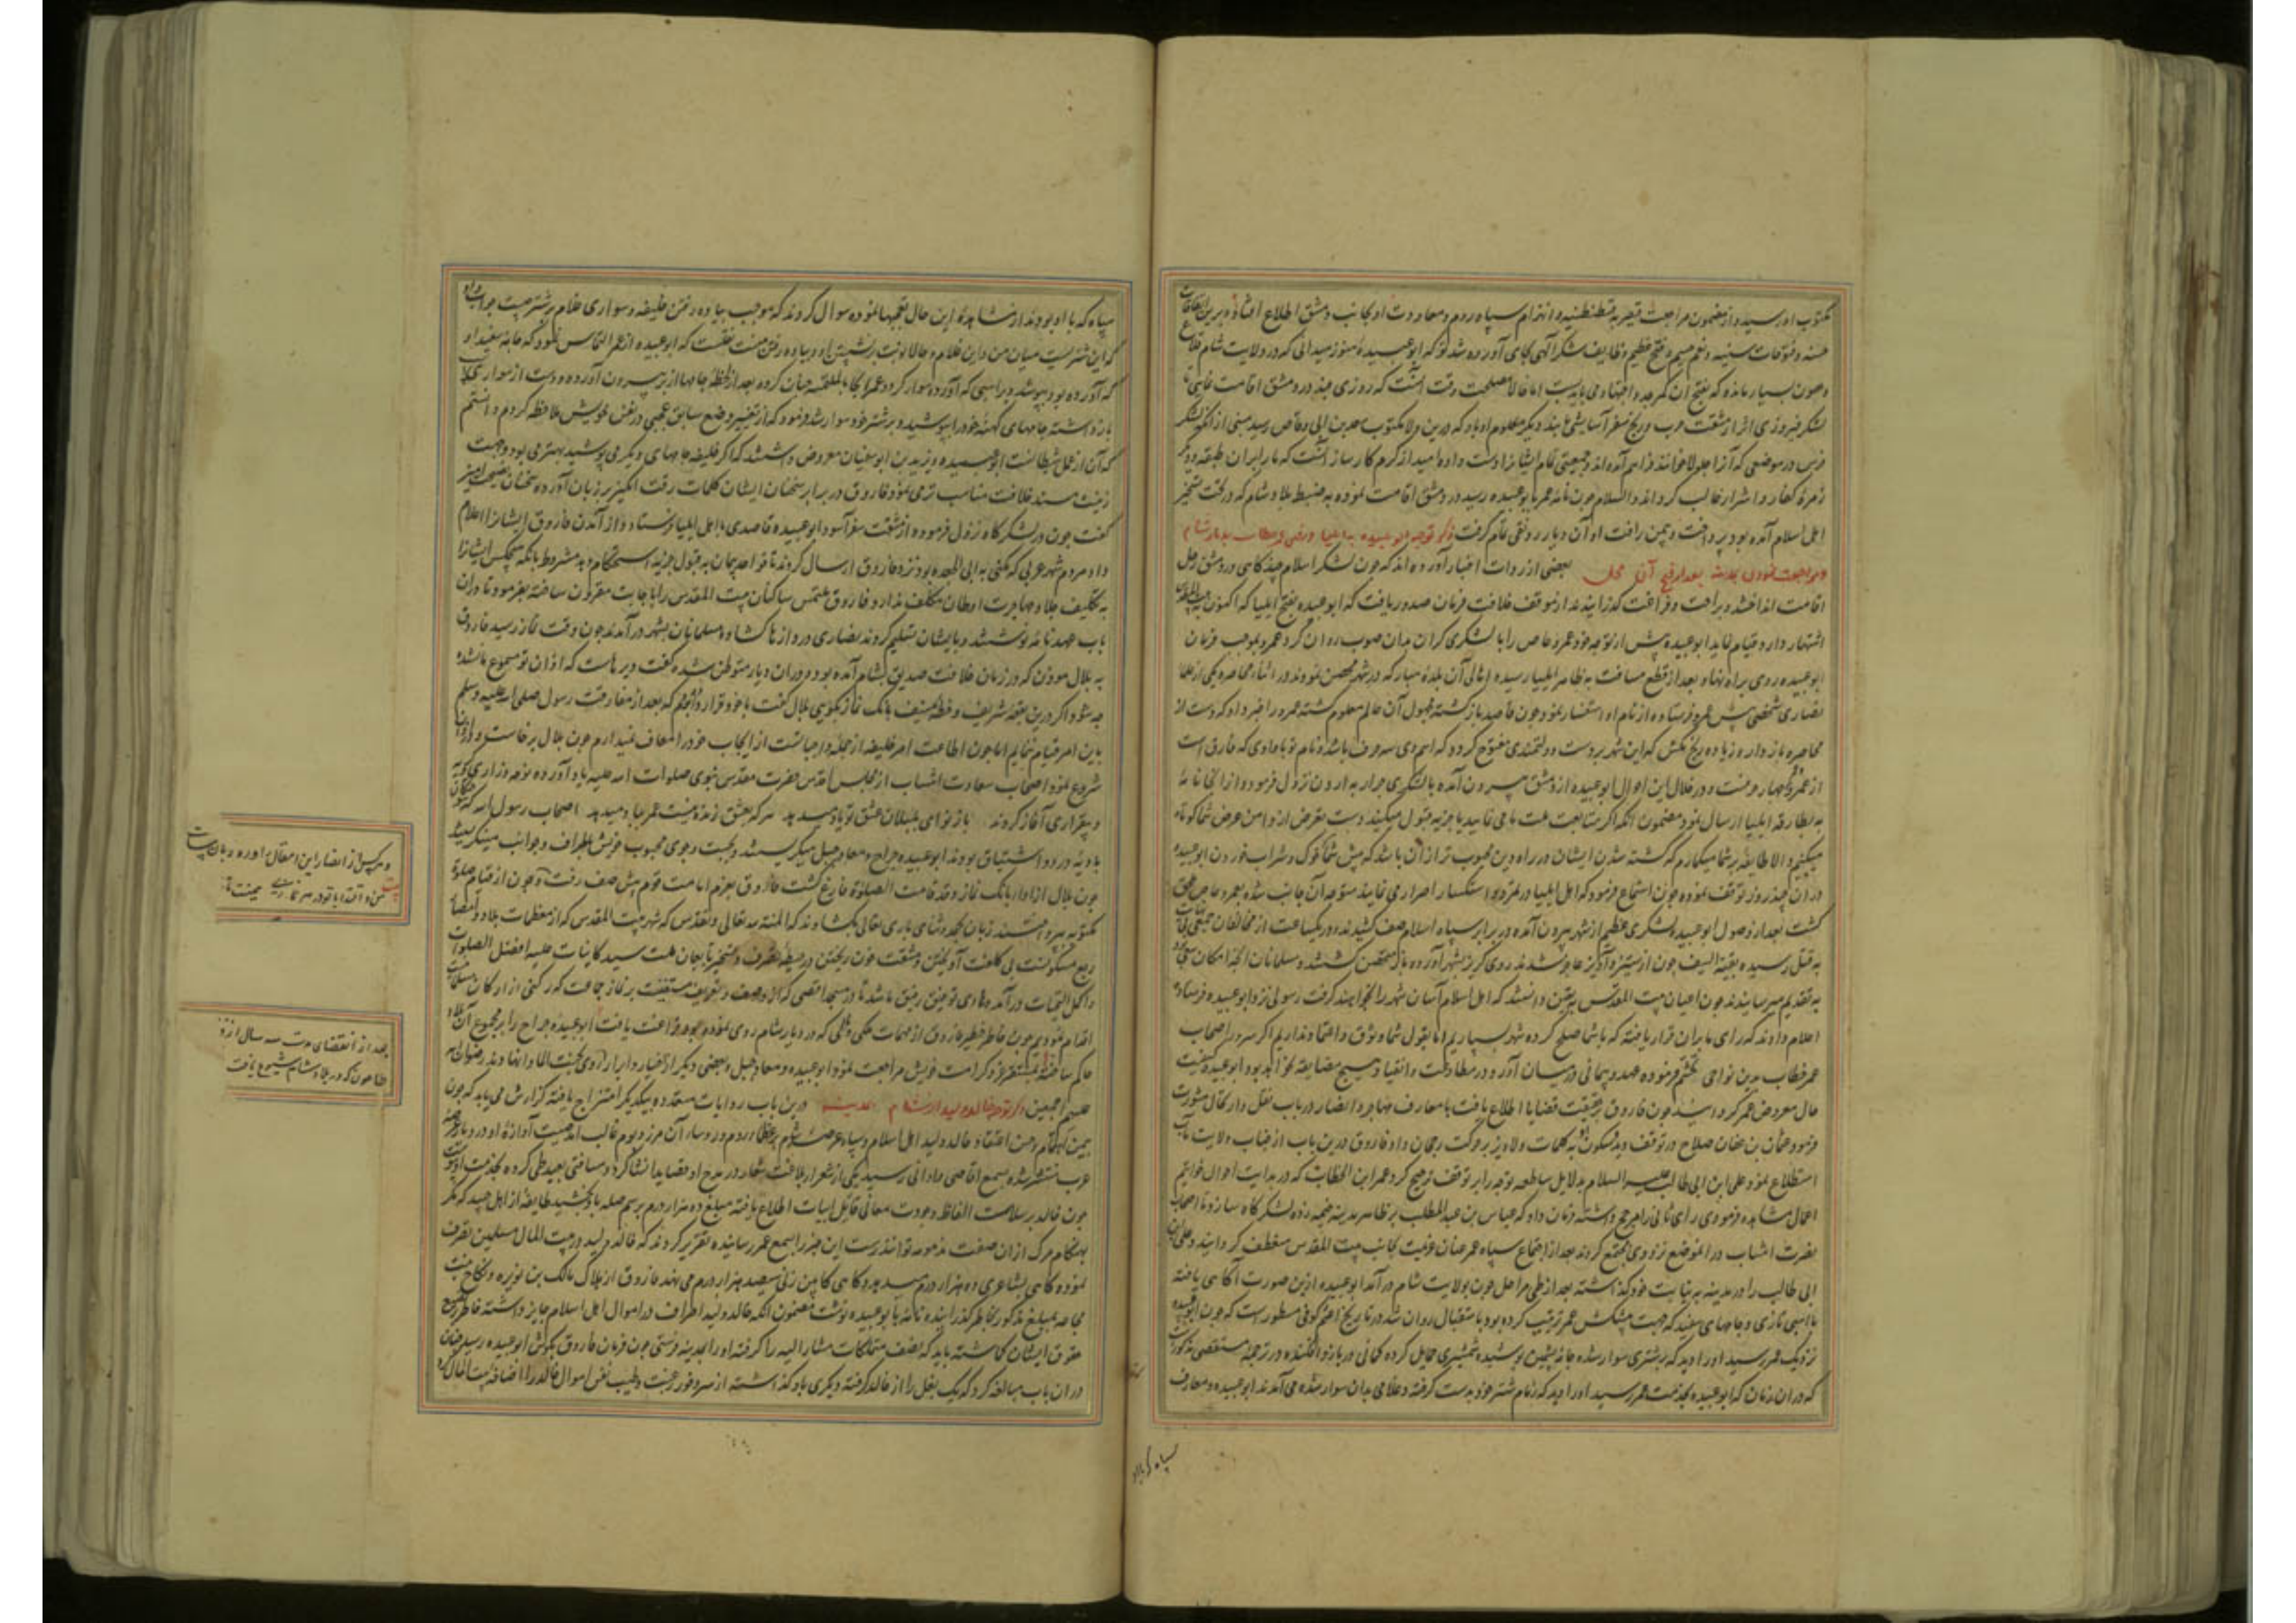 مکتوب او رسید و از مضمون مراجعت قیصر به قسطنطنیه و انهزام سپاه روم و معاودت او بجانب دمشق اطلاع افتاد و برین
حسنه و فتوحات سنیه و فتح عظیم وظایف شکر الهی بجای آورده شد که ابوعبیده هنوز میدانی که در ولایت شام قلاع
و حصون بسیار مانده که بفتح آن کمر جد و اجتهاد می باید بست اما حالا مصلحت وقت آنست که روزی چند در دمشق اقامت نمایی تا
لشکر فیروزی اثر از مشقت حرب و رنج سفر آسایشی یابند دیگر معلوم او باد که درین ولا مکتوب سعد بن ابی وقاص رسید مبنی از آنکه لشکر
فرس در موضعی که آنرا جلولا خوانند فراهم آمده اند و جمعیتی تمام ایشانرا دست داده امید از کرم کارساز آنست که ما را بر آن طبقه و دیگر
زمره کفار و اشرار غالب کرداند والسلام چون نامه عمر بابوعبیده رسید در دمشق اقامت نموده به ضبط بلاد شام که در تحت تسخیر
اهل اسلام آمده بود پرداخت و بیمن رافت او آن دیار رونقی تمام گرفت ذکر توجه ابوعبیده به ایلیا و رفتن عمر خطاب بدیار شام
و مراجعت نمودن بمدینه بعد از فتح آن محل بعضی از روات اخبار آورده اند که چون لشکر اسلام چند کاهی در دمشق رحل
اقامت انداخته و براحت و فراغت کذرانیدند از موقف خلافت فرمان صدور یافت که ابوعبیده بفتح ایلیا که اکنون به بیت المقدس
اشتهار دارد قیام نماید ابوعبیده پیش از توجه خود عمرو عاص را با لشکری کران بدان صوب روان کرد عمرو بموجب فرمان
ابوعبیده روی براه نهاد و بعد از قطع مسافت به ظاهر ایلیا رسیده اهالی آن بلده مبارکه در شهر متحصن شدند و در اثناء محاصره یکی از علماء
نصاری شخصی پیش عمرو فرستاده از نام او استفسار نمود چون قاصد بازگشته مجهول آن عالم معلوم گشته عمرو را خبر داد که دست از
محاصره باز دار و زیاده رنج مکش که این شهر بر دست دولتمندی مفتوح گردد که اسم وی سه حرف باشد و نام تو با واوی که فارق است
از عمر چهار حرفست و در خلال این احوال ابوعبیده از دمشق بیرون آمده با لشکری جرار به اردن نزول فرمود و از آنجا نامه
به بطارقه ایلیا ارسال نمود مضمون آنکه اگر متابعت ملت ما می نمایید یا جزیه قبول میکنید دست تعرض از دامن عرض شما کوتاه
میکنیم والا طایفه بر شما میگمارم که کشته شدن ایشان در راه دین محبوب تر از آن باشد که پیش شما گوشت خوک و شراب خوردن ابوعبیده
در آن چند روز توقف نموده چون استماع فرمود که اهل ایلیا در تمرد و استکبار اصرار می نمایند متوجه آن جانب شده بعمرو عاص ملحق
گشت بعد از وصول ابوعبیده لشکری عظیم از شهر بیرون آمده در برابر سپاه اسلام صف کشیدند و در یکساعت از مخالفان جمعی
به قتل رسیده بقیة السیف چون از ستیز و آویز عاجز شدند روی گریز بشهر آورده باز متحصن گشتند و مسلمانان آنچه امکان سعی بود
به تقدیم میرسانیدند چون اعیان بیت المقدس به یقین دانستند که اهل اسلام آسان شهر را نخواهند گرفت رسولی نزد ابوعبیده فرستاده
اعلام دادند که رای ما بر آن قرار یافته که با شما صلح کرده شهر بسپاریم اما بقول شما وثوق و اعتماد نداریم اگر سرور اصحاب
عمر خطاب بدین نواحی تجشم فرموده عهد و پیمانی در میان آورد در مطاوعت و انقیاد هیچ مضایقه نخواهد بود ابوعبیده کیفیت
حال معروض عمر گردانید چون فاروق بر حقیقت قضایا اطلاع یافت با معارف مهاجر و انصار در باب نقل و ارتحال مشورت
فرمود عثمان بن عفان صلاح در توقف دید و سکون به کلمات دلاویز بر حرکت رجحان داد فاروق درین باب از جناب ولایت مآب
استطلاع نمود علی ابن ابی طالب علیه السلام بدلایل ساطعه توجه را بر توقف ترجیح کرد عمر ابن الخطاب که در بدایت احوال خواتیم
اعمال مشاهده فرمودی رای ثانی را مرجح داشته فرمان داد که عباس بن عبدالمطلب بر ظاهر مدینه خیمه زده لشکرگاه سازد تا اصحاب
نصرت انتساب در آنموضع نزد وی مجتمع گردند بعد از اجتماع سپاه عمر عنان عزیمت بجانب بیت المقدس منعطف گردانید و علی ابن
ابی طالب را در مدینه به نیابت خود گذاشته بعد از طی مراحل چون بولایت شام درآمد ابوعبیده ازین صورت آگاهی یافته
با اسبی تازی و جامهای سفید که جهت پیشکش عمر ترتیب کرده بود باستقبال روان شد در تاریخ اعثم کوفی مسطور است که چون ابوعبیده
نزدیک عمر رسید او را دید که بر شتری سوار شده جامه پشمین پوشیده شمشیری حمایل کرده کمانی در بازو افکنده در ترجمه مستقصی مذکور است
که در آن زمان که ابوعبیده بخدمت عمر رسید او را دید که زمام شتر خود بدست گرفته و غلامی بدان سوار شده می آمدند ابوعبیده و معارف
سپاه که با او
سپاه که با او بودند از مشاهده این حال تعجبها نموده سوال کردند که موجب پیاده رفتن خلیفه و سواری غلام بر شتر چیست جواب داد
که این شتریست میان من و این غلام و حالا نوبت نشستن او و پیاده رفتن منست نقلست که ابوعبیده از عمر التماس نمود که جامه سفید او
که آورده بود بپوشد و بر اسبی که آورده سوار گردد عمر ایجابا لملتمسه چنان کرده بعد از لحظه جامها از بر بیرون آورده و دست از سواری
بازداشته جامهای کهنه خود را بپوشید و بر شتر خود سوار شد و فرمود که از تغییر وضع سابق عجبی در نفس خویش ملاحظه کردم دانستم
که آن از عمل شیطانست ابوعبیده و یزید بن ابوسفیان معروض داشتند که اگر خلیفه جامهای دیگر می پوشید بهتر می بود و جهت
زینت مسند خلافت مناسب تر می نمود فاروق در برابر سخنان ایشان کلمات رقت انگیز بر زبان آورده سخنان نصیحت آمیز
گفت چون در لشکرگاه نزول فرموده از مشقت سفر آسود ابوعبیده قاصدی با اهل ایلیا فرستاد و از آمدن فاروق ایشانرا اعلام
داد مردم شهر عربی که مکنی به ابی الجعده بود نزد فاروق ارسال کردند تا قواعد پیمان به قبول جزیه استحکام دهد مشروط بانکه هیچکس ایشانرا
به تکلیف جلا و مهاجرت اوطان مکلف ندارد فاروق ملتمس ساکنان بیت المقدس را باجابت مقرون ساخته بفرمود تا در آن
باب عهدنامه نوشتند و بایشان تسلیم کردند نصاری دروازها گشاده مسلمانان بشهر درآمدند چون وقت نماز رسید فاروق
به بلال موذن که در زمان خلافت صدیق بشام آمده بود و در آن دیار متوطن شده گفت دیر هاست که اذان تو مسموع ما نشده
چه شود اگر درین بقعه شریف و خطه منیف بانک نماز بگویی بلال گفت با خود قرار داده بودم که بعد از مفارقت رسول صلی الله علیه وسلم
باین امر قیام ننمایم اما چون اطاعت امر خلیفه از جمله واجباتست از ایجاب خود را معاف نمیدارم چون بلال برخاست و در اذان
شروع نمود اصحاب سعادت انتساب از مجلس اقدس حضرت مقدس نبوی صلوات الله علیه یاد آورده نوحه و زاری و گریه
و بیقراری آغاز کردند باز نوای بلبلان عشق تو یاد میدهد هر که بعشق زنده نیست عمر بباد میدهد اصحاب رسول الله که
بادیه درد و اشتیاق بودند ابوعبیده جراح و معاذ جبل میگریستند و بجست و جوی محبوب خویش باطراف و جوانب مینگریستند
چون بلال از ادای بانک نماز و قد قامت الصلوة فارغ گشت فاروق بعزم امامت قوم پیش صف رفت و چون از قیام صلوة
مکتوبه پرداختند زبان بحمد و ثنای باری تعالی بگشادند که المنة لله تعالی و تقدس که شهر بیت المقدس که از معظمات بلاد
ربع مسکونست بی کلفت آویختن و مشقت خون ریختن در حیطه تصرف و تسخیر تابعان ملت سید کاینات علیه افضل الصلوات
و اکمل التحیات درآمد و هادی توفیق رفیق ما شد تا در مسجد اقصی که از وصف و تعریف مستغنیست بر نماز جماعت که رکنی از ارکان مسلمانیست
اقدام نمودیم چون خاطر خطیر فاروق از مهمات ملکی و ملی که در دیار شام روی نموده بود فراغت یافت ابوعبیده جراح را بر مجموع آن بلاد
حاکم ساخته بمستقر عز و کرامت خویش مراجعت نمود ابوعبیده و معاذ جبل و بعضی دیگر از اخیار و ابرار
علیهم اجمعین ذکر توجه خالد ولید از شام بمدینه درین باب روایات متعدده بیکدیگر امتزاج یافته گزارش می یابد که چون
بیمن اهتمام و حسن اعتقاد خالد ولید اهل اسلام و سپاه عرب بر عظماء روم و روساء آن مرز و بوم غالب آمدند صیت آوازه او در دیار
عرب منتشر شده بسمع اقاصی و ادانی رسید یکی از شعراء بلاغت شعار در مدح او قصاید انشا کرد و مسافتی بعید طی کرده بخدمت او
چون خالد بر سلاست الفاظ و جودت معانی قائل ابیات اطلاع یافته مبلغ ده هزار درم برسم صله باو بخشید طایفه از اهل حسد که مگر
بهنگام مرگ از آن صفت مذمومه توانند رست این خبر را بسمع عمر رسانیده تقریر کردند که خالد ولید در بیت المال مسلمین تصرف
نموده گاهی بشاعری ده هزار درم میدهد و گاهی کابین زنی سیصد هزار درم می نهد فاروق از هلاک مالک بن نویره و نکاح بنت
مجاعه بمبلغ مذکور بخاطر گذرانیده نامه بابوعبیده نوشت مضمون آنکه خالد ولید اطراف در اموال اهل اسلام جایز داشته خاطر از تضییع
حقوق ایشان گماشته باید که نصف متملکات مشارالیه را گرفته او را بمدینه فرستی چون فرمان فاروق بگوش ابوعبیده رسید چنان
در آن باب مبالغه کرد که یک نعل را از خالد گرفته و دیگری باو گذاشته از سر وفور رغبت و طیب نفس اموال خالد را اضافه بیت المال کرد
و هر یکی از انصار این مقال آورده
من و اقتدا با تو در هر نمازی
بعد از انقضای مدت سه سال از
طاعون که در بلاد شام شیوع یافت